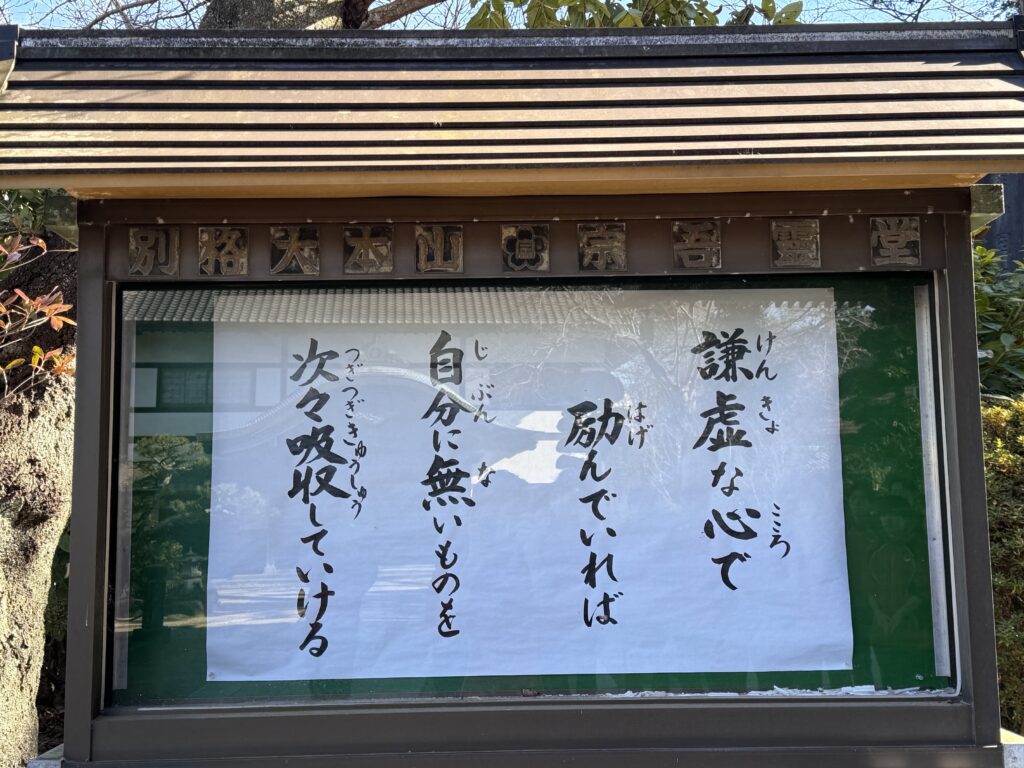 別格大本山宗吾靈堂
謙虚な心で
けんきょ こころ
励んでいれば
はげ
自分に無いものを
じぶん な
次々吸収していける
つぎつぎきゅうしゅう